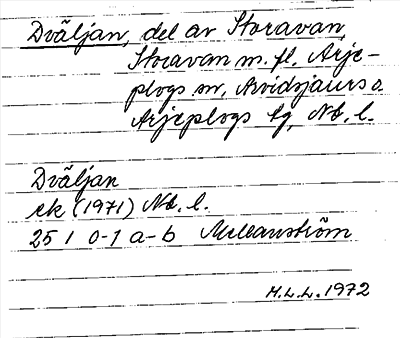 Dväljan, del av Storavan,
Storavan m. fl, Arje-
plogs sn, Arvidsjaurs o.
Arjeplogs tg, Nb. l.
Dväljan
ek (1971) Nb. l.
25 I 0-1 a-b Mellanström
H.L.L. 1972